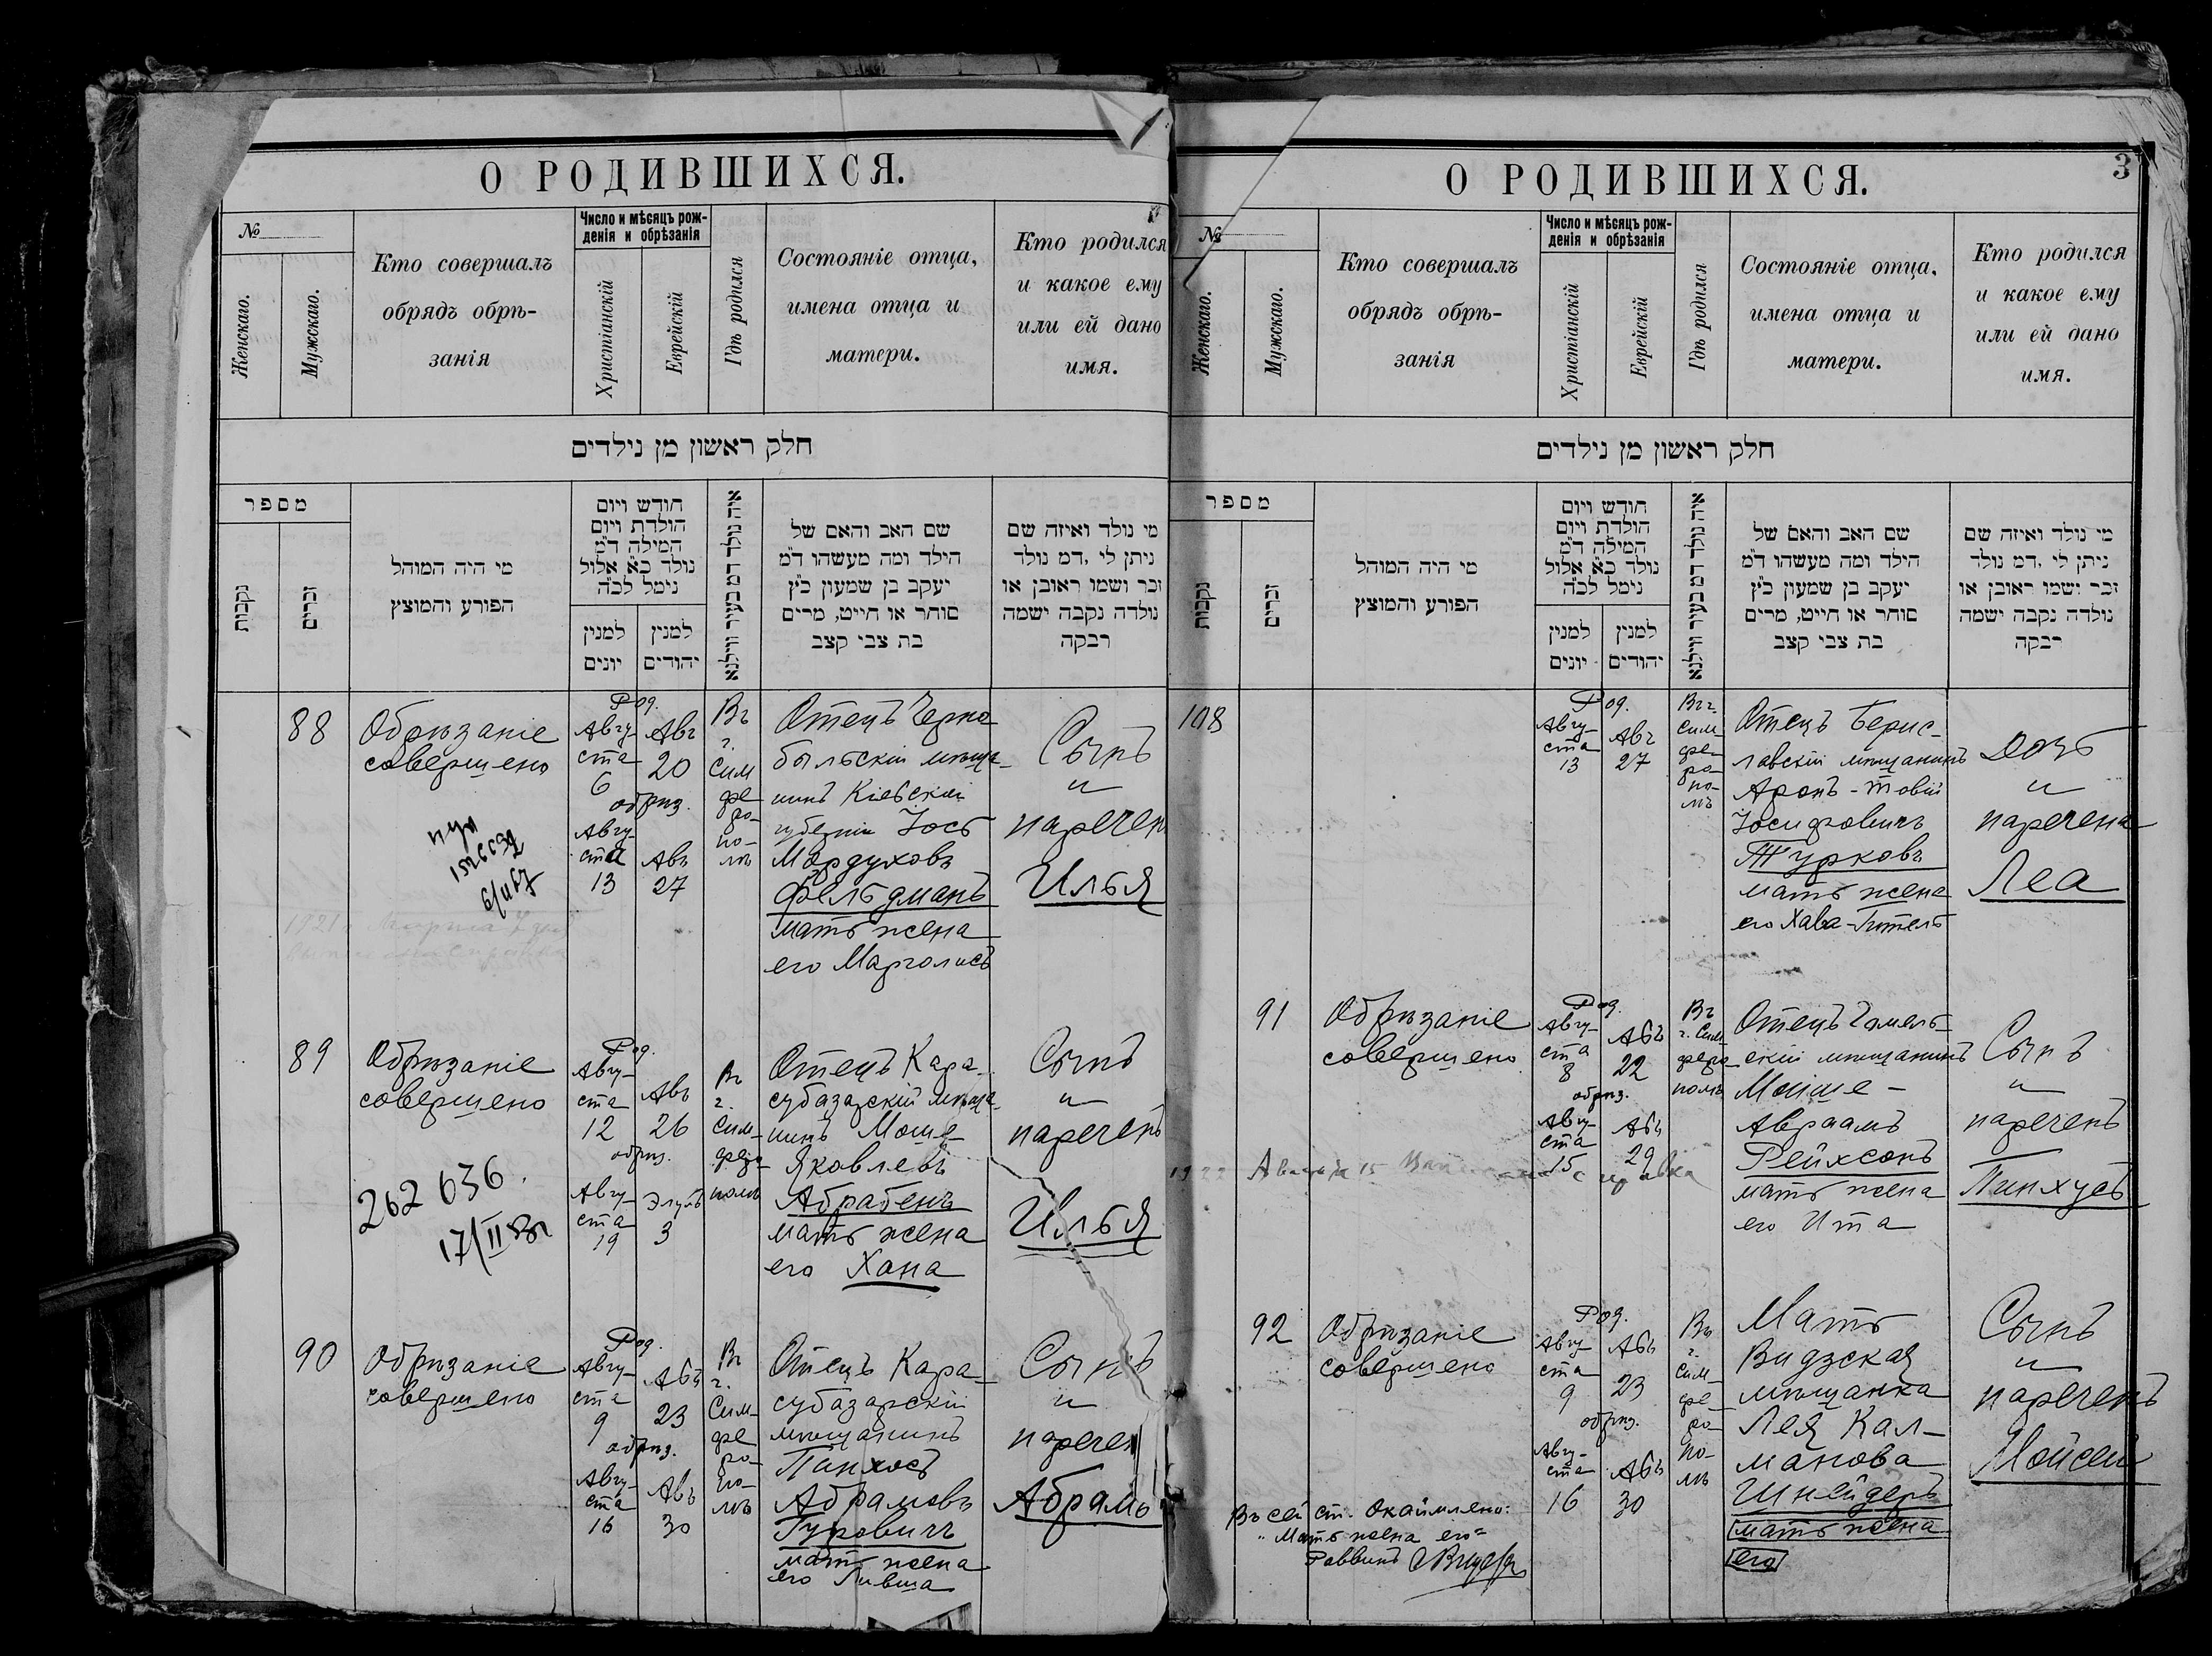 О РОДИВШИХСЯ.
№
Женскаго.
Мужскаго.
Кто совершалъ
обрядъ обрѣ-
занія
Число и мѣсяцъ рож-
денія и обрѣзанія
Христіанскій
Еврейскій
Гдѣ родился
Состояніе отца,
имена отца и
матери.
Кто родился
и какое ему
или ей дано
имя.
חלק ראשון מן נילדים
מספר
נקבות
זכרים
מי היה המוהל
הפורע והמוצץ
חודש ויום
הולדת ויום
המילה ד״מ
נולד כ״א אלול
נימל לכ״ה
למנין
יונים
למנין
יהודים
איה נולד דמ בעיר ווילנא
שם האב והאם של
הילד ומה מעשהו ד״מ
יעקב בן שמעון כ״ץ
סוחר או חייט, מרים
בת צבי קצב
מי נולד ואיזה שם
ניתן לי, דמ נולד
זכר ושמו ראובן או
נולדה נקבה ישמה
רבקה
88
Обрѣзаніе
совершено
Род.
Авгу-
ста
6
Авг
20
обрѣз.
Авгу-
ста
13
Авъ
27
Въ
г.
Сим
фе-
ро-
по-
лѣ
Отецъ Черно
быльскій мѣща-
нинъ Кіевской
губерніи Іось
Мордуховъ
Фельдманъ
мать жена
его Марголисъ
Сынъ
и
наречен
Илья
89
Обрѣзаніе
совершено
262 636.
Род.
Авгу-
ста
12
Авъ
26
обрѣз.
Авгу-
ста
19
Элулъ
3
Въ
г.
Сим-
феро-
полѣ
Отецъ Кара-
субазарскій мѣща-
нинъ Моше-
Яковлевъ
Абрабенъ
мать жена
его Хана
Сынъ
и
нареченъ
Илья
90
Обрѣзаніе
совершено
Род.
Авгу-
ста
9
Авъ
23
обрѣз.
Авгу-
ста
16
Авъ
30
Въ
г.
Сим-
фе
ро-
по-
лѣ
Отецъ Кара-
субазарскій
мѣщанинъ
Пинхосъ
Абрамовъ
Гуровичъ
мать жена
его Ливша
Сынъ
и
наречен
Абрамъ
О РОДИВШИХСЯ.
3
№
Женскаго.
Мужскаго.
Кто совершалъ
обрядъ обрѣ-
занія
Число и мѣсяцъ рож-
денія и обрѣзанія
Христіанскій
Еврейскій
Гдѣ родился
Состояніе отца,
имена отца и
матери.
Кто родился
и какое ему
или ей дано
имя.
חלק ראשון מן נילדים
מספר
נקבות
זכרים
מי היה המוהל
הפורע והמוצץ
חודש ויום
הולדת ויום
המילה ד״מ
נולד כ״א אלול
נימל לכ״ה
למנין
יונים
למנין
יהודים
איה נולד דמ בעיר ווילנא
שם האב והאם של
הילד ומה מעשהו ד״מ
יעקב בן שמעון כ״ץ
סוחר או חייט, מרים
בת צבי קצב
מי נולד ואיזה שם
ניתן לי, דמ נולד
זכר ושמו ראובן או
נולדה נקבה ישמה
רבקה
108
Род.
Авгу-
ста
13
Авг
27
Въ г.
Сим
фе-
ро-
по-
лѣ
Отецъ Берис-
лавскій мѣщанинъ
Аронъ-Товій
Іосифовичъ
Турковъ
мать жена
его Хава-Гитель
Дочь
и
наречена
Леа
91
Обрѣзаніе
совершено
Род.
Авгу-
ста
8
Авъ
22
обрѣз.
Авгу-
ста
15
Авъ
29
Въ
г. Сим-
феро-
полѣ
Отецъ Гомель-
скій мѣщанинъ
Мойше-
Авраамъ
Рейхсонъ
мать жена
его Ита
Сынъ
и
нареченъ
Пинхусъ
92
Обрѣзаніе
совершено
Род.
Авгу-
ста
9
Авъ
23
обрѣз.
Авгу-
ста
16
Авъ
30
Въ
г.
Сим-
фе-
ро-
по-
лѣ
Мать
Видзская
мѣщанка
Лея Кал-
манова
Шнейдеръ
мать жена
его
Сынъ
и
нареченъ
Мойсей
Въ сей ст. окаймлено:
"Мать жена его"
Раввинъ